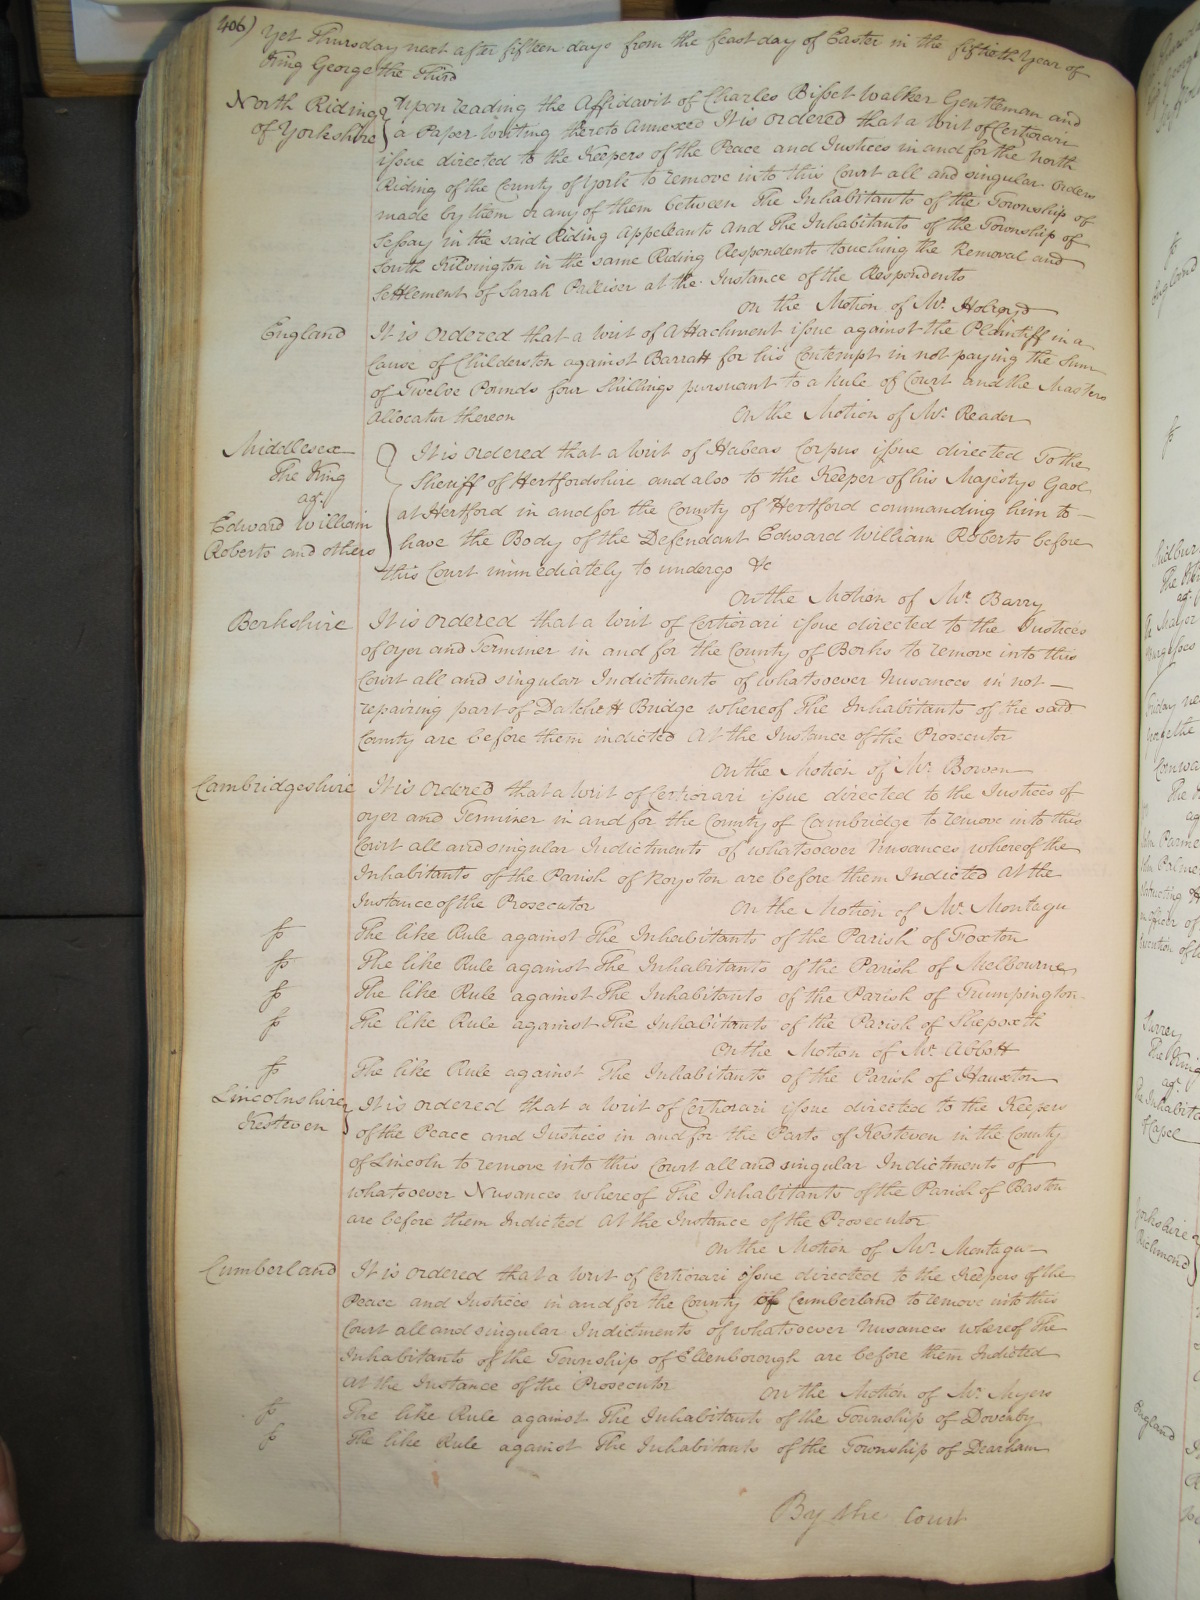 406)
Yet Thursday next after fifteen days from the feast day of Easter in the fiftieth Year of
King George the Third
North Riding of Yorkshire } Upon reading the Affidavit of Charles Bisset Walker Gentleman and
a Paper Writing thereto Annexed It is ordered that a Writ of Certiorari
issue directed to the Keepers of the Peace and Justices in and for the North
Riding of the County of York to remove into this Court all and singular Orders
made by them or any of them between The Inhabitants of the Township of
Sessay in the said Riding Appellants and The Inhabitants of the Township of
South Kilvington in the same Riding Respondents touching the Removal and
Settlement of Sarah Palliser at the Instance of the Respondents
On the Motion of Mr. Holroyd
England It is ordered that a Writ of Attachment issue against the Plaintiff in a
Cause of Childerston against Barratt for his Contempt in not paying the Sum
of Twelve Pounds four Shillings pursuant to a Rule of Court and the Masters
Allocatur thereon On the Motion of Mr. Reader
Middlesex
The King
agt.
Edward William
Roberts and others
It is ordered that a Writ of Habeas Corpus issue directed To the
Sheriff of Hertfordshire and also to the Keeper of his Majestys Gaol
at Hertford in and for the County of Hertford commanding him to
have the Body of the Defendant Edward William Roberts before
this Court immediately to undergo &c
On the Motion of Mr. Barry
Berkshire It is ordered that a Writ of Certiorari issue directed to the Justices
of oyer and Terminer in and for the County of Berks to remove into this
Court all and singular Indictments of whatsoever Nusances in not
repairing part of Datchett Bridge whereof The Inhabitants of the said
County are before them indicted At the Instance of the Prosecutor
On the Motion of Mr. Bowen
Cambridgeshire It is ordered that a Writ of Certiorari issue directed to the Justices of
oyer and Terminer in and for the County of Cambridge to remove into this
Court all and singular Indictments of whatsoever Nusances whereof the
Inhabitants of the Parish of Royston are before them Indicted At the
Instance of the Prosecutor On the Motion of Mr. Montagu
The like Rule against The Inhabitants of the Parish of Foxton
The like Rule against The Inhabitants of the Parish of Melbourne
The like Rule against The Inhabitants of the Parish of Trumpington
The like Rule against The Inhabitants of the Parish of Shepoxth
On the Motion of Mr. Abbott
The like Rule against The Inhabitants of the Parish of Hauxton
Lincolnshire Kesteven } It is ordered that a Writ of Certiorari issue directed to the Keepers
of the Peace and Justices in and for the Parts of Kesteven in the County
of Lincoln to remove into this Court all and singular Indictments of
whatsoever Nusances whereof The Inhabitants of the Parish of Baston
are before them Indicted At the Instance of the Prosecutor
On the Motion of Mr. Montagu
Cumberland It is ordered that a Writ of Certiorari issue directed to the Keepers of the
Peace and Justices in and for the County of Cumberland to remove into this
Court all and singular Indictments of whatsoever Nusances whereof The
Inhabitants of the Township of Ellenborough are before them Indicted
At the Instance of the Prosecutor On the Motion of Mr. Myers
The like Rule against The Inhabitants of the Township of Dovenby
The like Rule against The Inhabitants of the Township of Dearham
By the Court